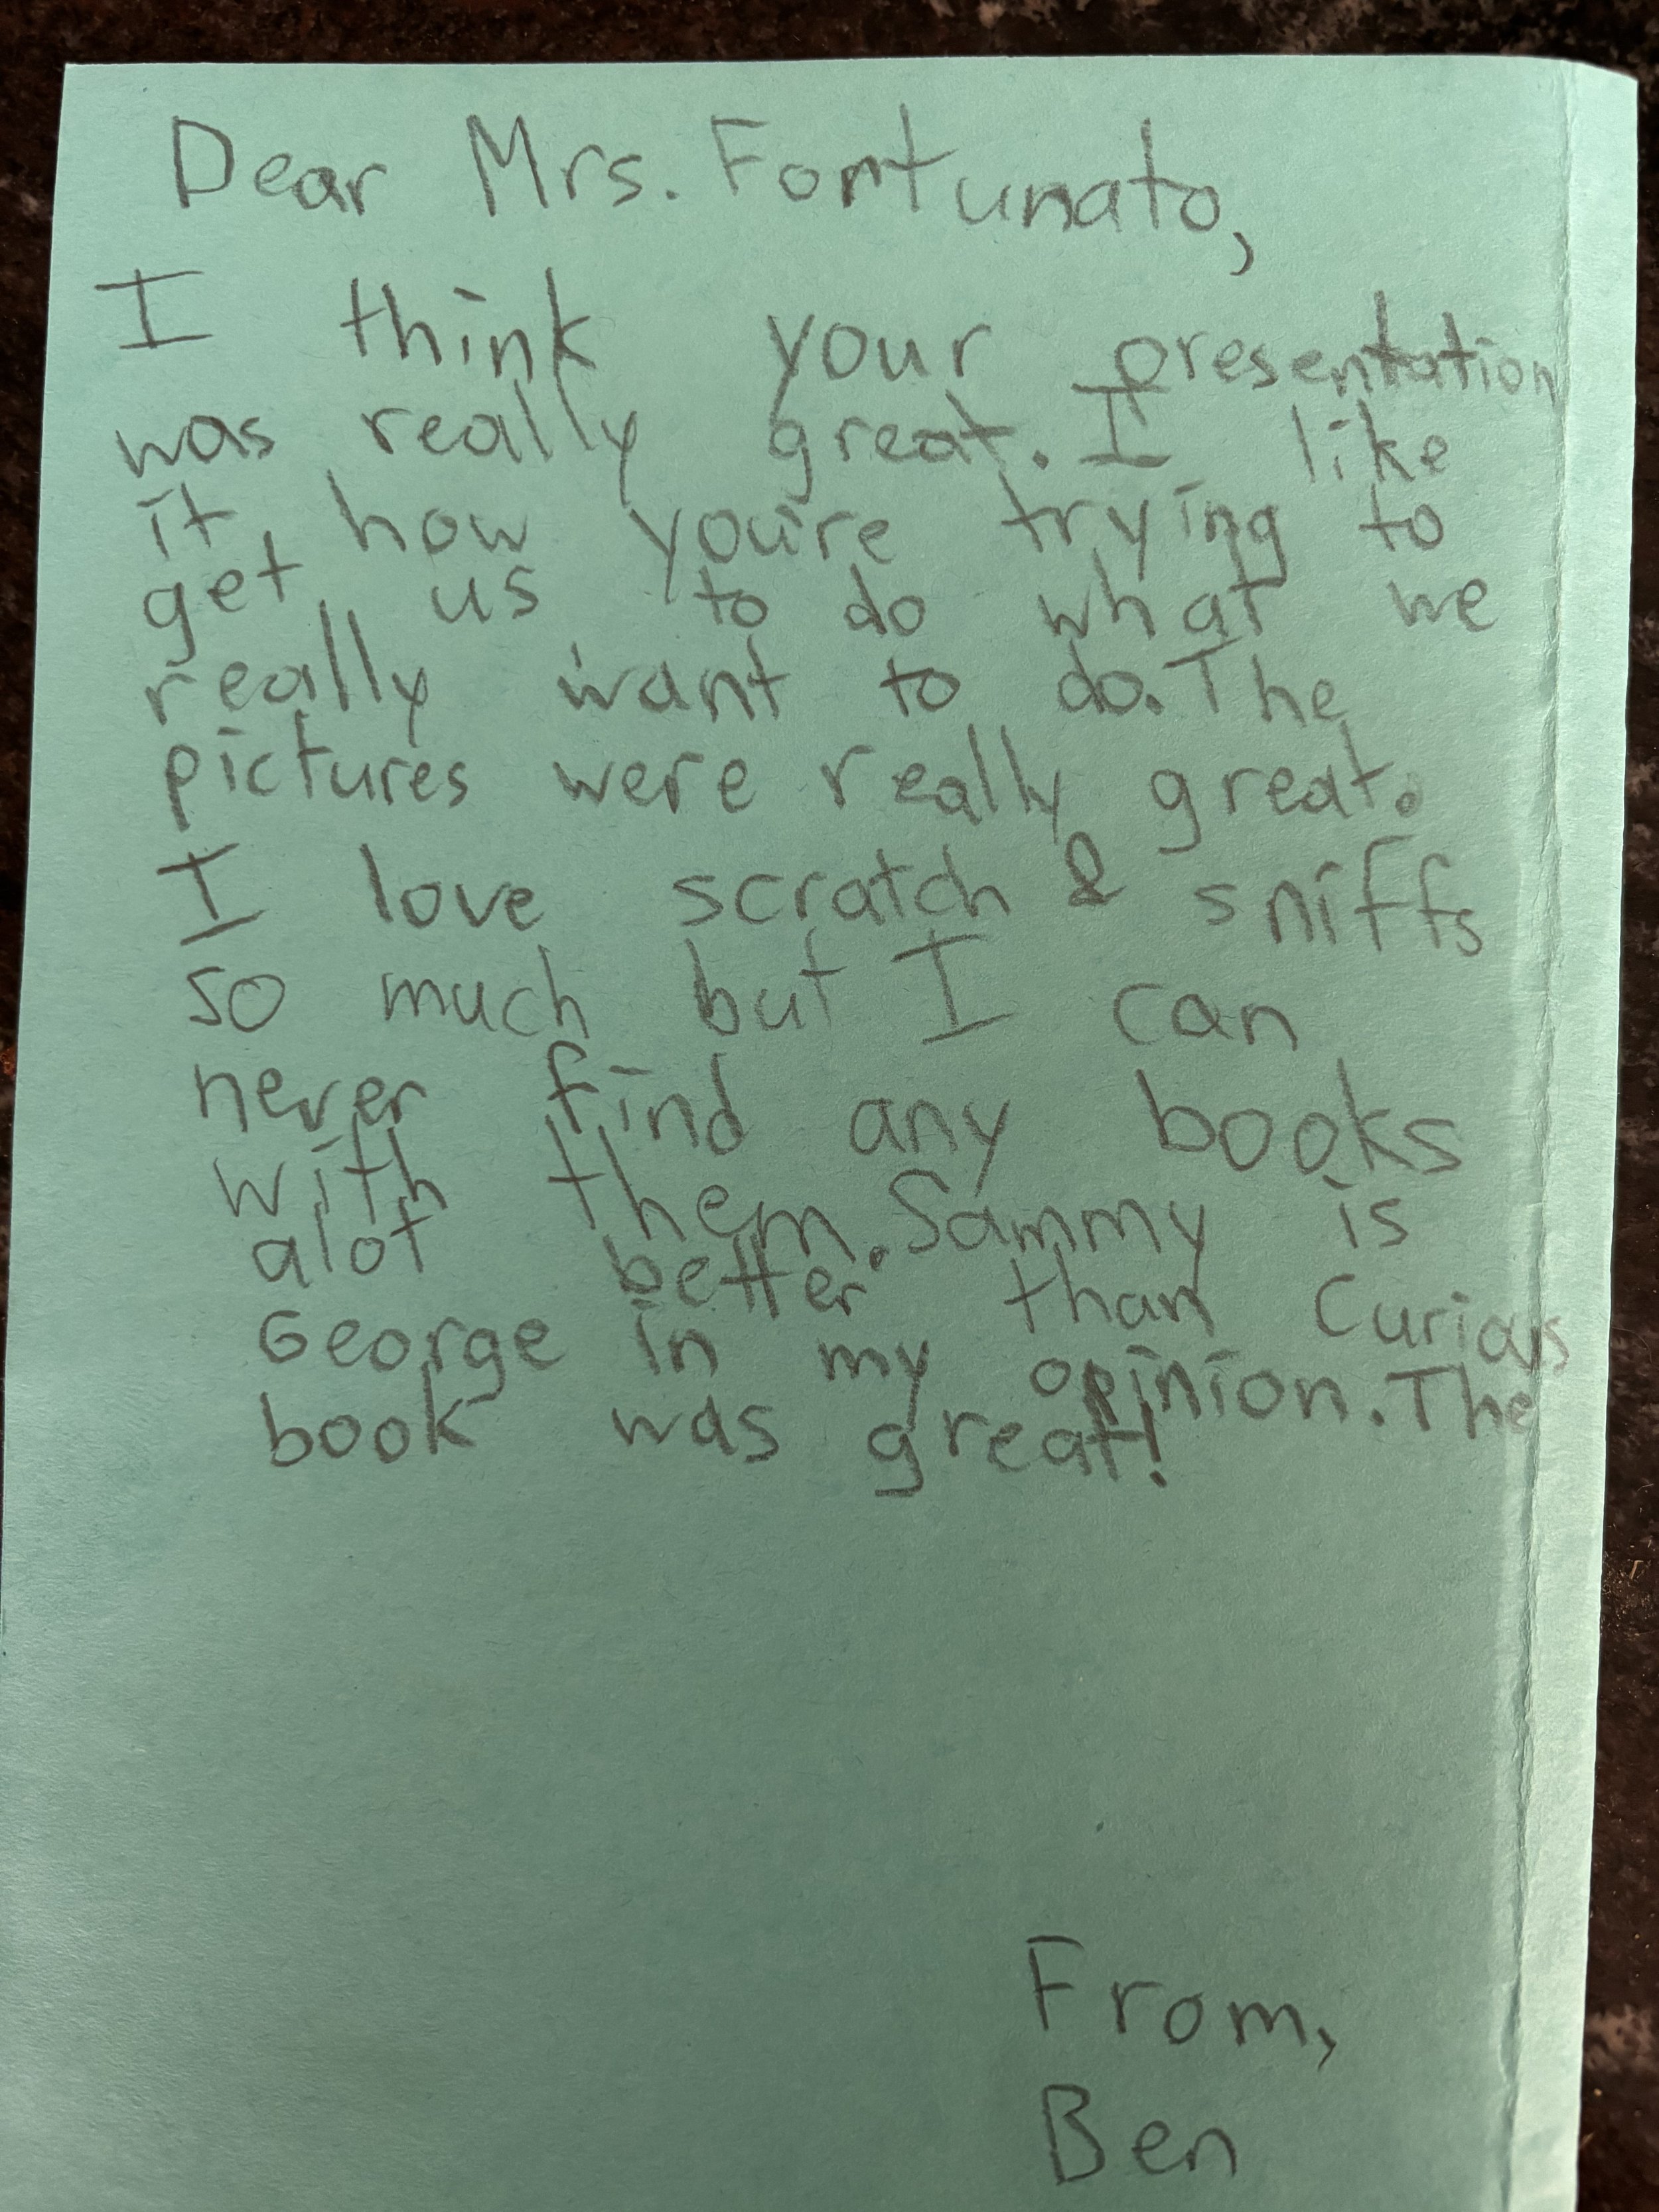 Dear Mrs. Fortunato,
I think your presentation
was really great. I like
it how you're trying to
get us to do what we
really want to do. The
pictures were really great.
I love scratch & sniffs
so much but I can
never find any books
with them. Sammy is
alot better than Curious
George in my opinion. The
book was great!
From,
Ben